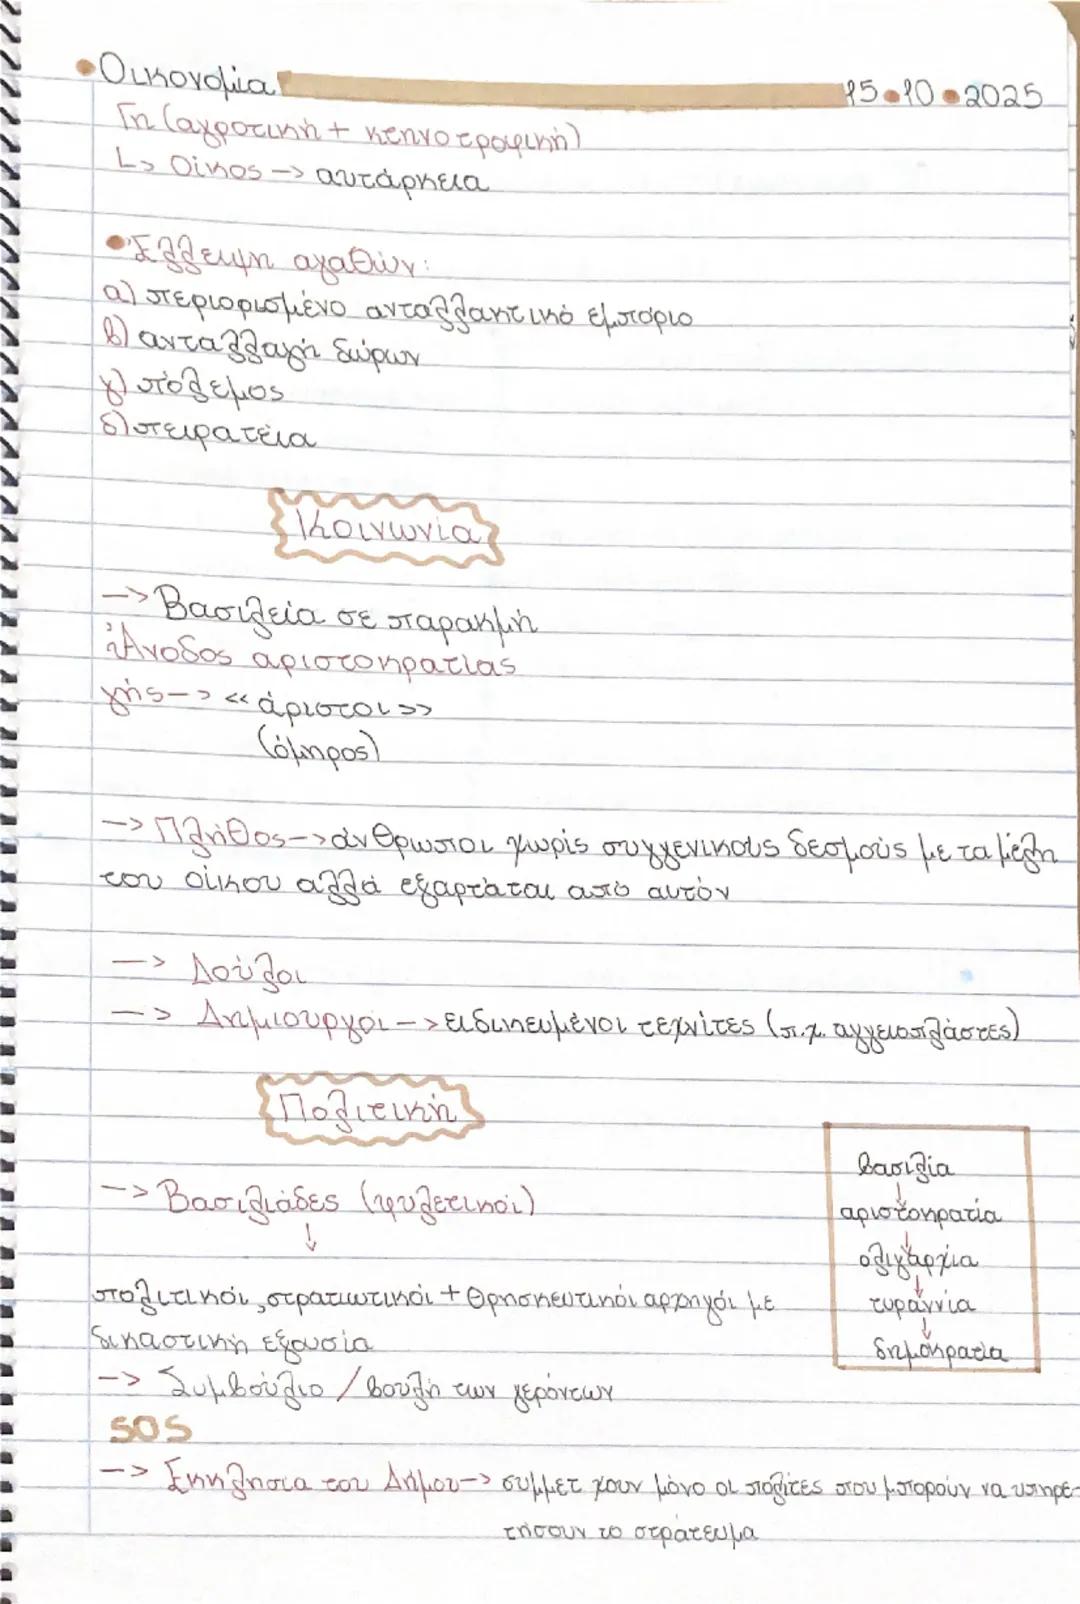 • Οικονομία 15•10•2025
Γη (αγροτική + κτηνοτροφική)
↳ Οίκος -> αυτάρκεια
• Έλλειψη αγαθών:
α) περιορισμένο ανταλλακτικό εμπόριο
β) ανταλλαγή δώρων
γ) πόλεμος
δ) πειρατεία
Κοινωνία
-> Βασιλεία σε παρακμή
Άνοδος αριστοκρατίας
γης -> «άριστοι»
(όμηρος)
-> Πλήθος -> άνθρωποι χωρίς συγγενικούς δεσμούς με τα μέλη
του οίκου αλλά εξαρτάται από αυτόν
-> Δούλοι
-> Δημιουργοί -> ειδικευμένοι τεχνίτες (π.χ. αγγειοπλάστες)
Πολιτική
-> Βασιλιάδες (φυλετικοί)
↓
πολιτικοί, στρατιωτικοί + θρησκευτικοί αρχηγοί με
δικαστική εξουσία
-> Συμβούλιο / βουλή των γερόντων
SOS
-> Εκκλησια του Δήμου -> συμμετχουν μόνο οι πολίτες που μπορούν να υπηρε-
τήσουν το στράτευμα
βασιλία
↓
αριστοκρατία
↓
ολιγαρχία
↓
τυραννία
↓
δημοκρατία